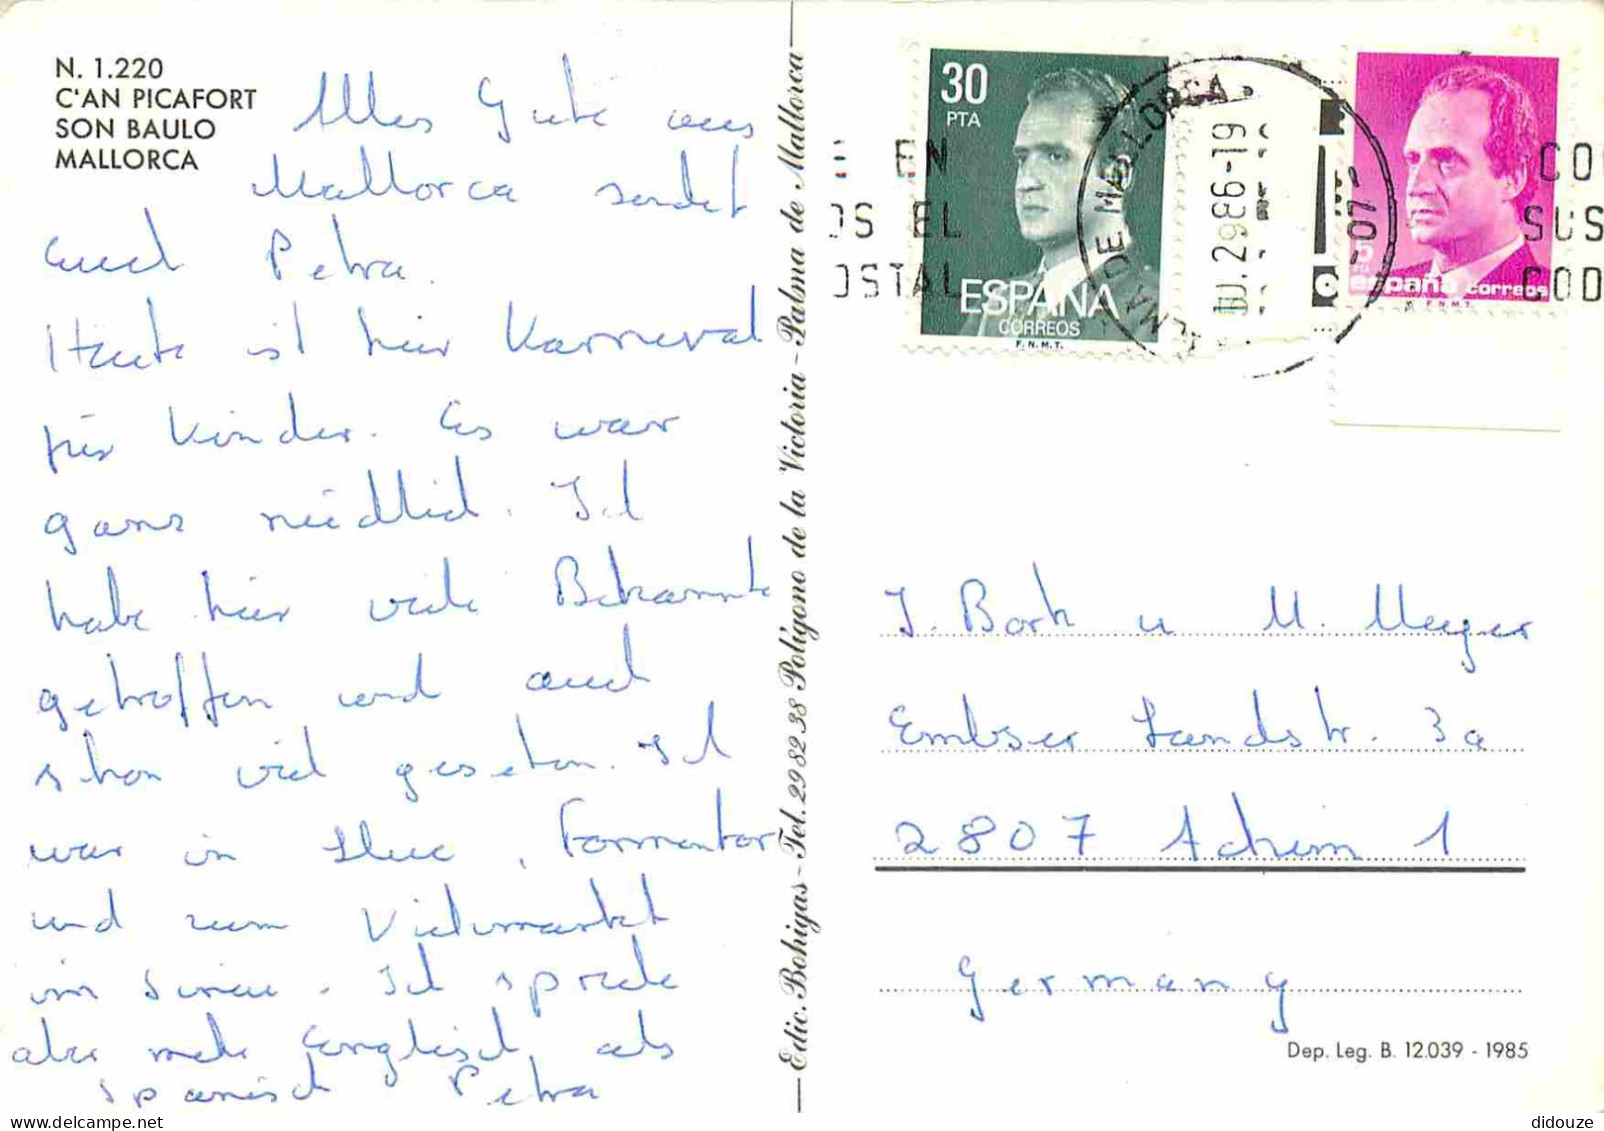 N. 1.220
C'AN PICAFORT
SON BAULO
MALLORCA
Alles Gute aus
Mallorca sendet
Euch Petra.
Heute ist hier Karneval
für Kinder. Es war
ganz niedlich. Ich
habe hier viele Bekannte
getroffen und auch
schon viel gesehen. Ich
war in Lluc, Formentor
und zum Viehmarkt
in Sineu. Ich spreche
aber mehr Englisch, als
Spanisch Petra
Edic. Bohigas - Tel. 29 82 38 Polígono de la Victoria - Palma de Mallorca
30
PTA
ESPAÑA
CORREOS
F.N.M.T.
5
PTA
españa correos
F.N.M.T.
E EN
OS EL
OSTAL
DE MALLORCA
10.2986-19
-07-
CO
SUS
COD
J. Bork u M. Meyer
Embser Landstr. 3a
2807 Achim 1
Germany
Dep. Leg. B. 12.039 - 1985
didouze